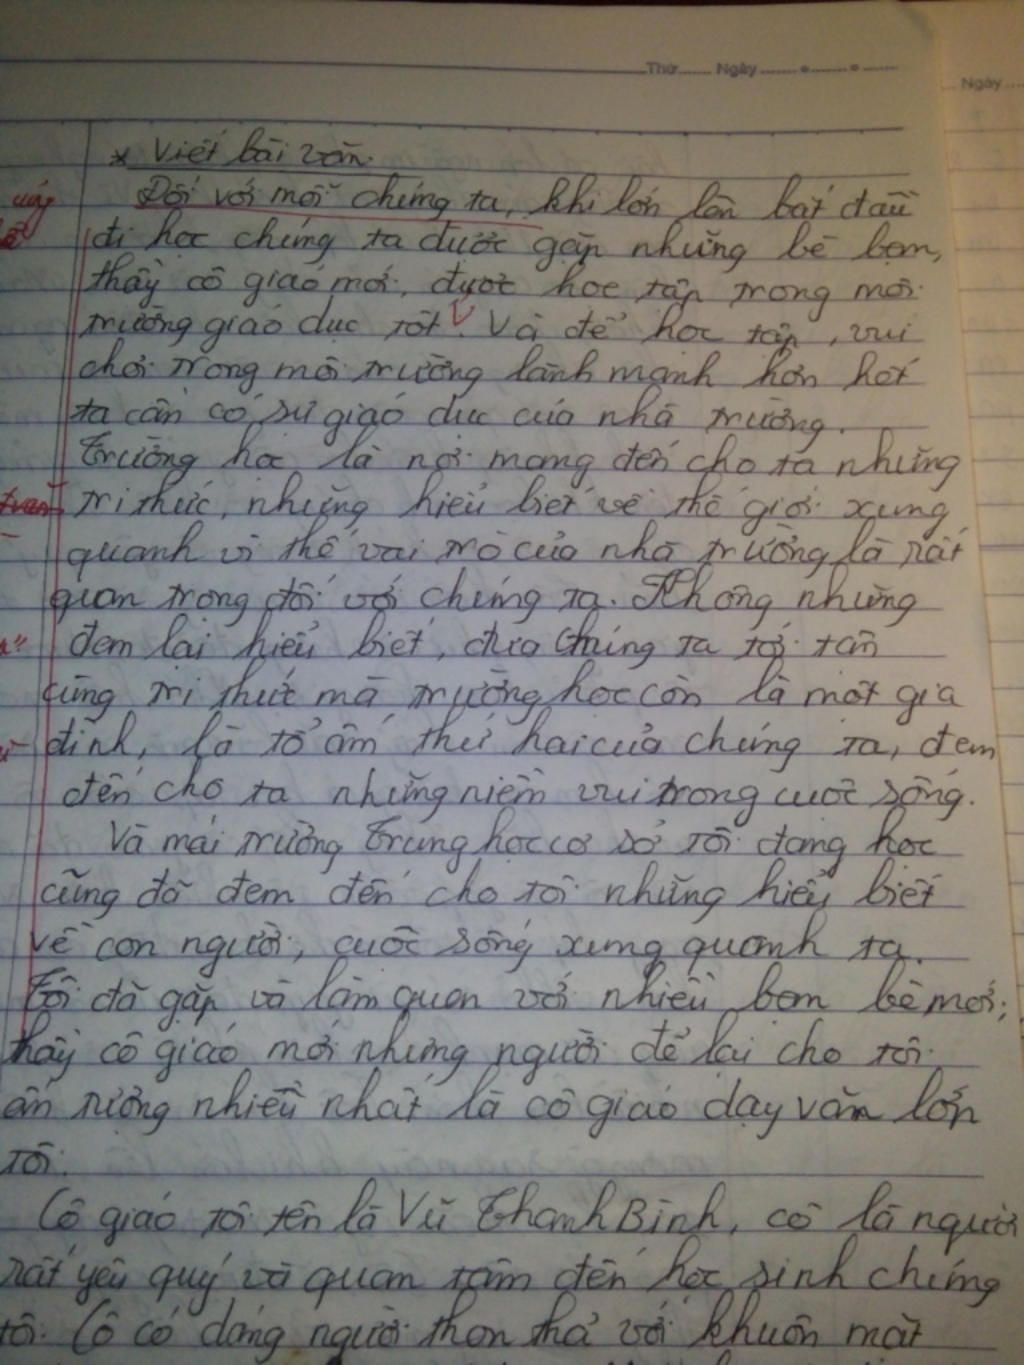 Thứ....... Ngày
Ngày
* Viết bài văn.
Đối với mỗi chúng ta, khi lớn lên bắt đầu
đi học chúng ta được gặp những bè bạn,
thầy cô giáo mới, được học tập trong môi
trường giáo dục tốt. Và để học tập, vui
chơi trong môi trường lành mạnh hơn hết
ta cần có sự giáo dục của nhà trường.
Trường học là nơi mang đến cho ta những
tri thức, những hiểu biết về thế giới xung
quanh vì thế vai trò của nhà trường là rất
quan trọng đối với chúng ta. Không những
đem lại hiểu biết, đưa chúng ta tới tận
cùng tri thức mà trường học còn là một gia
đình, là tổ ấm thứ hai của chúng ta, đem
đến cho ta những niềm vui trong cuộc sống.
Và mái trường Trung học cơ sở tôi đang học
cũng đã đem đến cho tôi những hiểu biết
về con người, cuộc sống xung quanh ta.
Tôi đã gặp và làm quen với nhiều bạn bè mới,
thầy cô giáo mới nhưng người để lại cho tôi
ấn tượng nhiều nhất là cô giáo dạy văn lớp
tôi.
Cô giáo tôi tên là Vũ Thanh Bình, cô là người
rất yêu quý và quan tâm đến học sinh chúng
tôi. Cô có dáng người thon thả với khuôn mặt